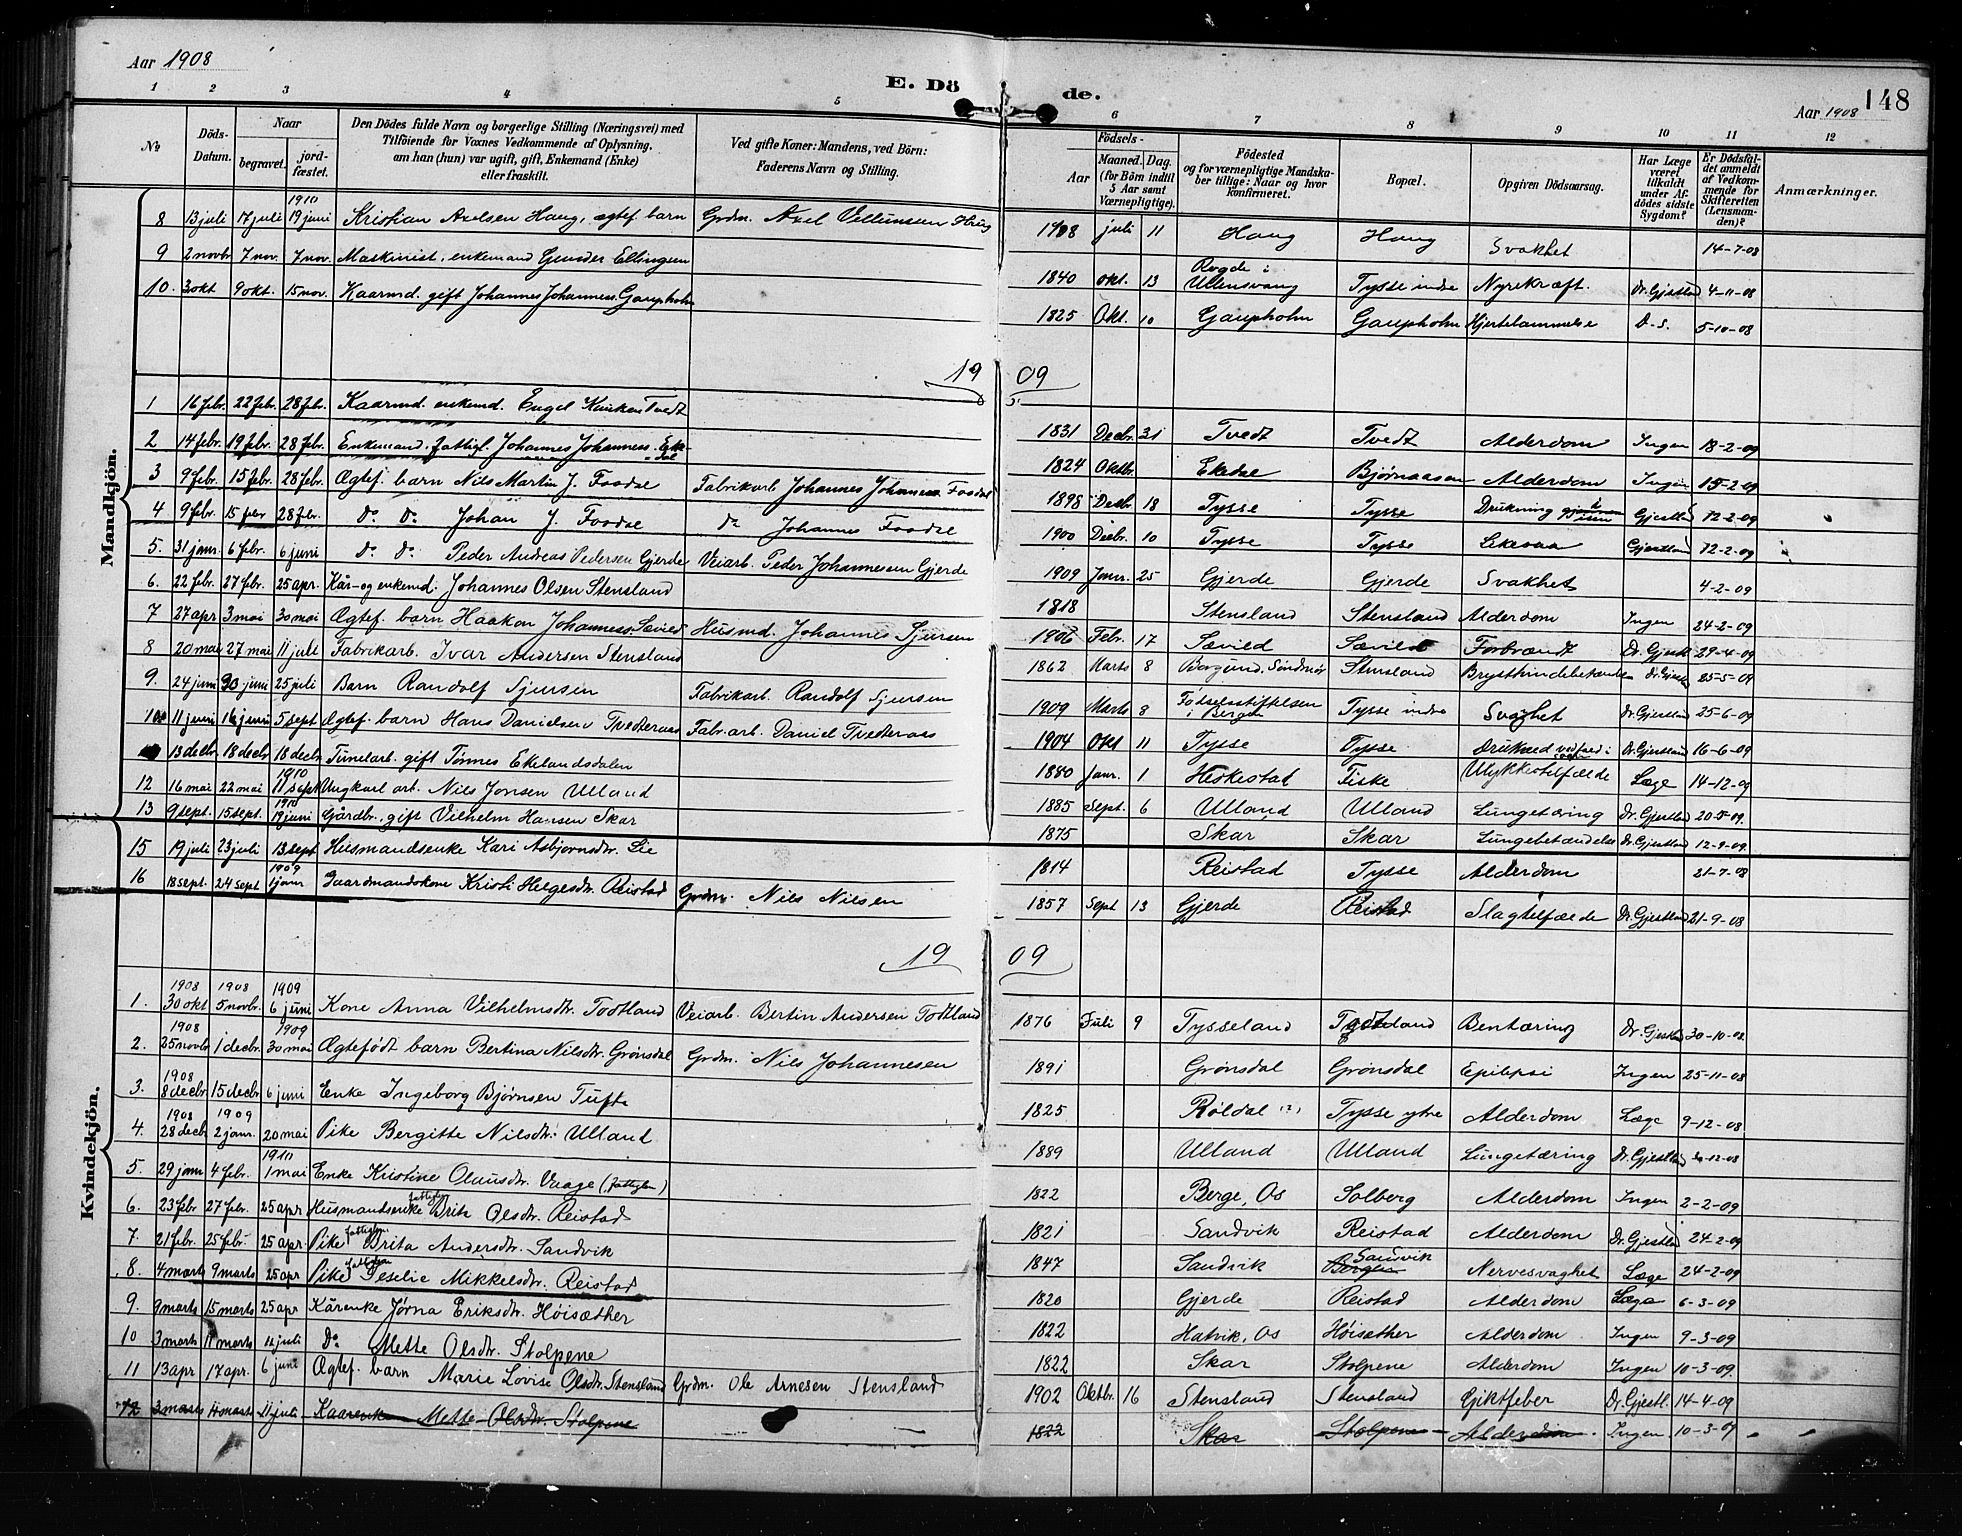 Aar 1908
E. Dö de.
148
Aar 1908
1 2 3 4 5 6 7 8 9 10 11 12
No
Döds-Datum.
Naar
begravet.
jord-fæstet.
Den Dödes fulde Navn og borgerlige Stilling (Næringsvei) med
Tilföiende for Voxnes Vedkommende af Oplysning,
om han (hun) var ugift, gift, Enkemand (Enke)
eller fraskilt.
Ved gifte Koner: Mandens, ved Börn:
Faderens Navn og Stilling.
Födsels-
Aar
Maaned. Dag.
(for Börn indtil
5 Aar samt
Værnepligtige).
Födested
og for værnepligtige Mandska-
ber tillige: Naar og hvor
konfirmeret.
Bopæl.
Opgiven Dödsaarsag.
Har Læge
været
tilkaldt
under Af-
dödes sidste
Sygdom?
Er Dödsfal-
det anmeldt
af Vedkom-
mende for
Skifteretten
(Lensman-
den)?
Anmærkninger.
8 13 juli 17 juli 1910 19 juni Kristian Axelsen Haug, ægtef. barn Grdm. Axel Haug 1908 juli 11 Haug Haug Svakhet 14-7-08
9 2 novbr 7 nov. 7 nov. Maskinist, enkemand Gunder Ellingsen 1840 okt. 13 Rogde i Ullensvang Tysse indre Nyrekræft. Dr. Gjestland 4-11-08
10. 3 okt 9 okt. 15 nov. Kaarmd. gift Johannes Johanness. Gaupholm 1825 Okt. 10 Gaupholm Gaupholm Hjertelammelse D. s. 5-10-08
19 09
Mandkjön.
1 16 febr. 22 febr. 28 febr. Kaarmd. enkemd. Engel Tvedt 1831 Decbr. 31 Tvedt Tvedt Alderdom Ingen 18-2-09
2 14 febr. 19 febr. 28 febr. Enkemand. fattigl. Johannes Johanness. Ekedal 1824 Oktbr. Ekedal Bjørnaasen Alderdom Ingen 15-2-09
3 9 febr. 15 febr. 28 febr. Ægtef. barn Nils Martin J. Fosdal Fabrikarb. Johannes Johanness. Fosdal 1898 Decbr. 18 Tysse Tysse Drukning Gjestland 12-2-09
4 9 febr. 15 febr 28 febr. do. do. Johan J. Fosdal do. Johannes Fosdal 1900 Decbr. 10 Tysse Tysse Likesaa Gjestland 12-2-09
5. 31 janr. 6 febr. 6 juni do. do. Peder Andreas Pedersen Gjerde Veiarb. Peder Johannesen Gjerde 1909 Janr. 25 Gjerde Gjerde Svakhet 4-2-09
6. 22 febr. 27 febr. 25 apr. Kår- og enkemd. Johannes Olsen Stensland 1818 Stensland Stensland Alderdom Ingen 24-2-09
7 27 apr 3 mai 30 mai Ægtef. barn Haakon Johanness. Sævild Husmd. Johannes Sjursen 1906 Febr. 17 Sævild Sævild Forbrændt Dr. Gjestl. 29-4-09
8 20 mai 27 mai 11 juli Fabrikarb. Ivar Andersen Stensland 1862 Marts 8 Borgund, Søndmør Stensland Brysthindebetændelse Dr. Gjestl. 25-5-09
9. 24 juni 30 juni 25 juli Barn Randolf Sjursen Fabrikarb. Randolf Sjursen 1909 Marts 8 Fødselsstiftelsen i Bergen Tysse indre Svaghet Dr. Gjestland 25-6-09
10 11 juni 16 juni 5 sept Ægtef. barn Hans Danielsen Tvederaas Fabr. arb. Daniel Tvederaas 1904 Okt 11 Tysse Tysse Druknet Dr. Gjestland 16-6-09
13 decbr. 18 decbr 18 decbr Tunelarb. gift Tønnes Ekelandsdalen 1880 Janr. 1 Heskestad Fiske Ulykkestilfælde Læge 14-12-09
12 16 mai 22 mai 1910 11 sept Ungkarl arb. Nils Jonsen Ulland 1885 Sept. 6 Ulland Ulland Lungetæring Dr. Gjestland 20-5-09.
13 9 sept. 15 sept. 1910 19 juni Gårdbr. gift Vilhelm Hansen Skar 1875 Skar Skar Lungebetændelse Dr. Gjestland 12-9-09.
15 19 juli 23 juli 13 sept Husmandsenke Kari Asbjørnsdr. Lie 1814 Reistad Tysse Alderdom 21-7-08
16 18 sept. 24 sept 1909 1 janr Gaardmandskone Kristi Helgesdr. Reistad Grdm. Nils Nilsen 1857 Sept 13 Gjerde Reistad Slagtilfælde Dr. Gjestland 21-9-08
19 09
Kvindekjön.
1. 1908 30 okt 1908 5 novbr. 1909 6 juni Kone Anna Vilhelmsdr. Todtland Veiarb. Bertin Andersen Todtland 1876 Juli 9 Tysseland Todtland Bentæring Dr. Gjestland 30-10-08
2. 1908 25 novbr 1 decbr. 1909 30 mai Ægtefødt barn Bertina Nilsdr. Grønsdal Grdm. Nils Johannesen 1891 Grønsdal Grønsdal Epilepsi Ingen 25-11-08
3. 1908 8 decbr. 15 decbr. 6 juni Enke Ingeborg Bjørnsen Tufte 1825 Røldal (?) Tysse ytre Alderdom Læge 9-12-08
4. 1908 28 decbr 1909 2 janr. 20 mai Pike Bergitte Nilsdr. Ulland 1889 Ulland Ulland Lungetæring Dr. Gjestland 12-08
5. 29 janr 4 febr. 1910 1 mai Enke Kristine Olausdr. Vaage (fattiglem) 1822 Berge, Os Solberg Alderdom Ingen 2-2-09
6. 23 febr 27 febr. 25 apr Husmandsenke fattiglem Brita Olsdr. Reistad 1821 Sandvik Reistad Alderdom Dr. Gjestland 24-2-09
7 21 febr. 25 febr. 25 apr. Pike fattiglem Brita Andersdr. Sandvik 1847 Sandvik Bergen Sandvik Nervesvaghet Læge 24-2-09
8. 4 marts 9 marts 25 apr Pike fattiglem Seselie Mikkelsdr. Reistad 1820 Gjerde Reistad Alderdom Læge 6-3-09
9. 9 marts 15 marts 25 apr Kårenke Jørna Eriksdr. Høisæther 1822 Hatvik, Os Høisæther Alderdom Ingen 9-3-09
10 3 marts 11 marts 11 juli Do Mette Olsdr. Stolpene 1822 Skar Stolpene Alderdom Ingen 10-3-09.
11 13 apr 17 apr. 6 juni Ægtef. barn Marie Lovise Olsdr. Stensland Grdm. Ole Arnesen Stensland 1902 Oktbr. 16 Stensland Stensland Giktfeber Dr. Gjestl. 14-4-09
12 3 marts 11 marts 11 juli Kaarenke Mette Olsdr. Stolpene 1822 Skar Stolpene Alderdom. Ingen 10-3-09